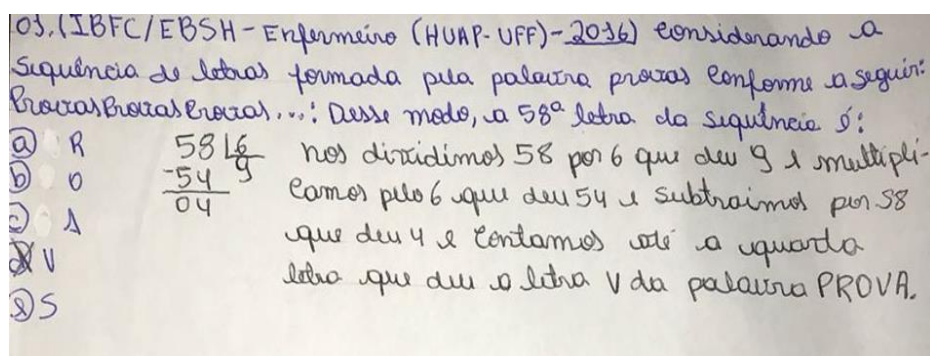 03. (IBFC/EBSH - Enfermeiro (HUAP-UFF) - 2016) Considerando a
sequência de letras formada pela palavra provas conforme a seguir:
ProvasProvasProvas...: Desse modo, a 58ª letra da sequência é:
a) R
b) O
c) A
d) V
e) S
58 6
-54 9
04
nos dividimos 58 por 6 que deu 9 e multipli-
camos pelo 6 que deu 54 e subtraimos por 58
que deu 4 e contamos até a quarta
letra que deu a letra V da palavra PROVA.